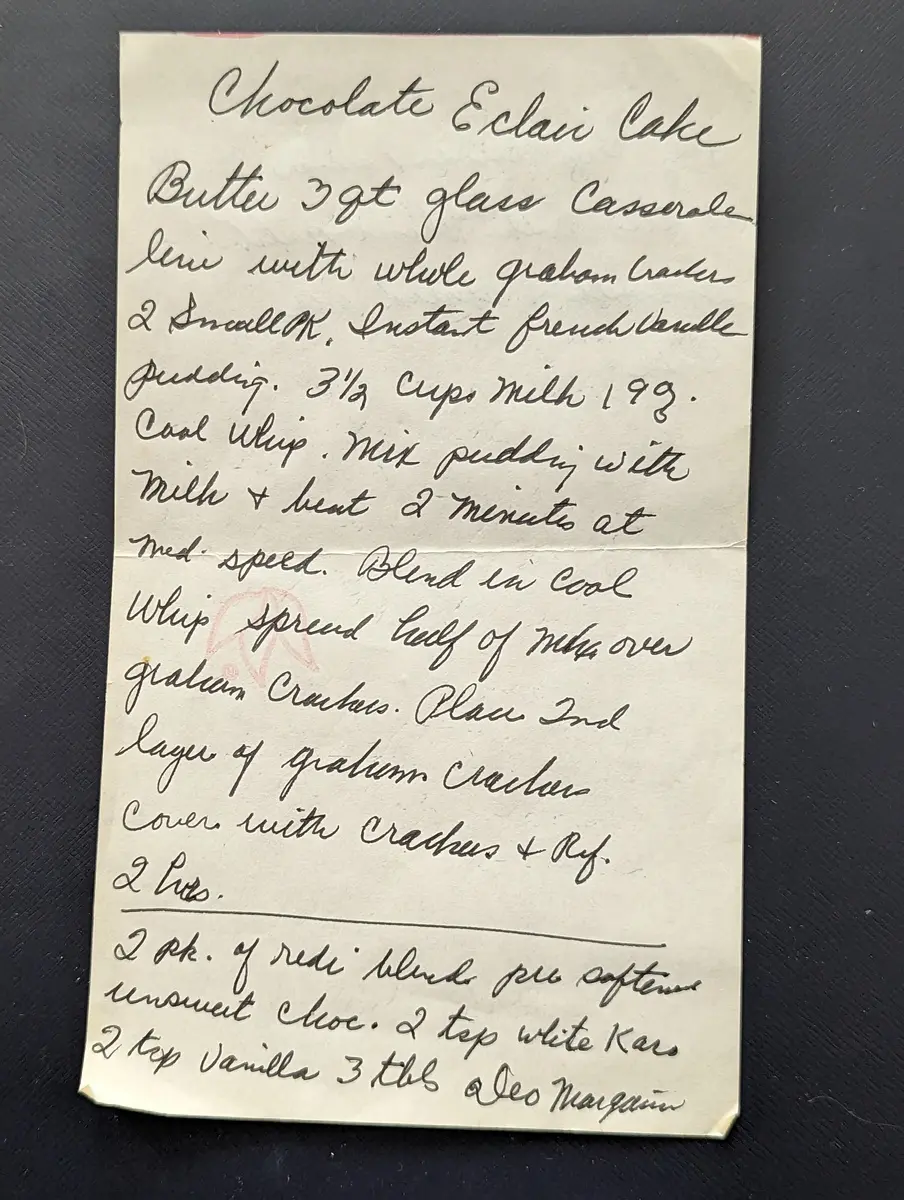 Chocolate Eclair Cake
Butter 3 qt glass Casserole
line with whole graham Crackers
2 Small PK. Instant french Vanilla
pudding. 3 1/2 Cups Milk 1 9 oz.
Cool Whip. Mix pudding with
Milk + beat 2 minutes at
med. speed. Blend in Cool
Whip spread half of mix over
graham Crackers. Place 2nd
layer of graham crackers
Cover with crackers + Ref.
2 hrs.
2 pk. of redi blend pre softened
unsweet Choc. 2 tsp white Karo
2 tsp Vanilla 3 tbls Oleo Margarine